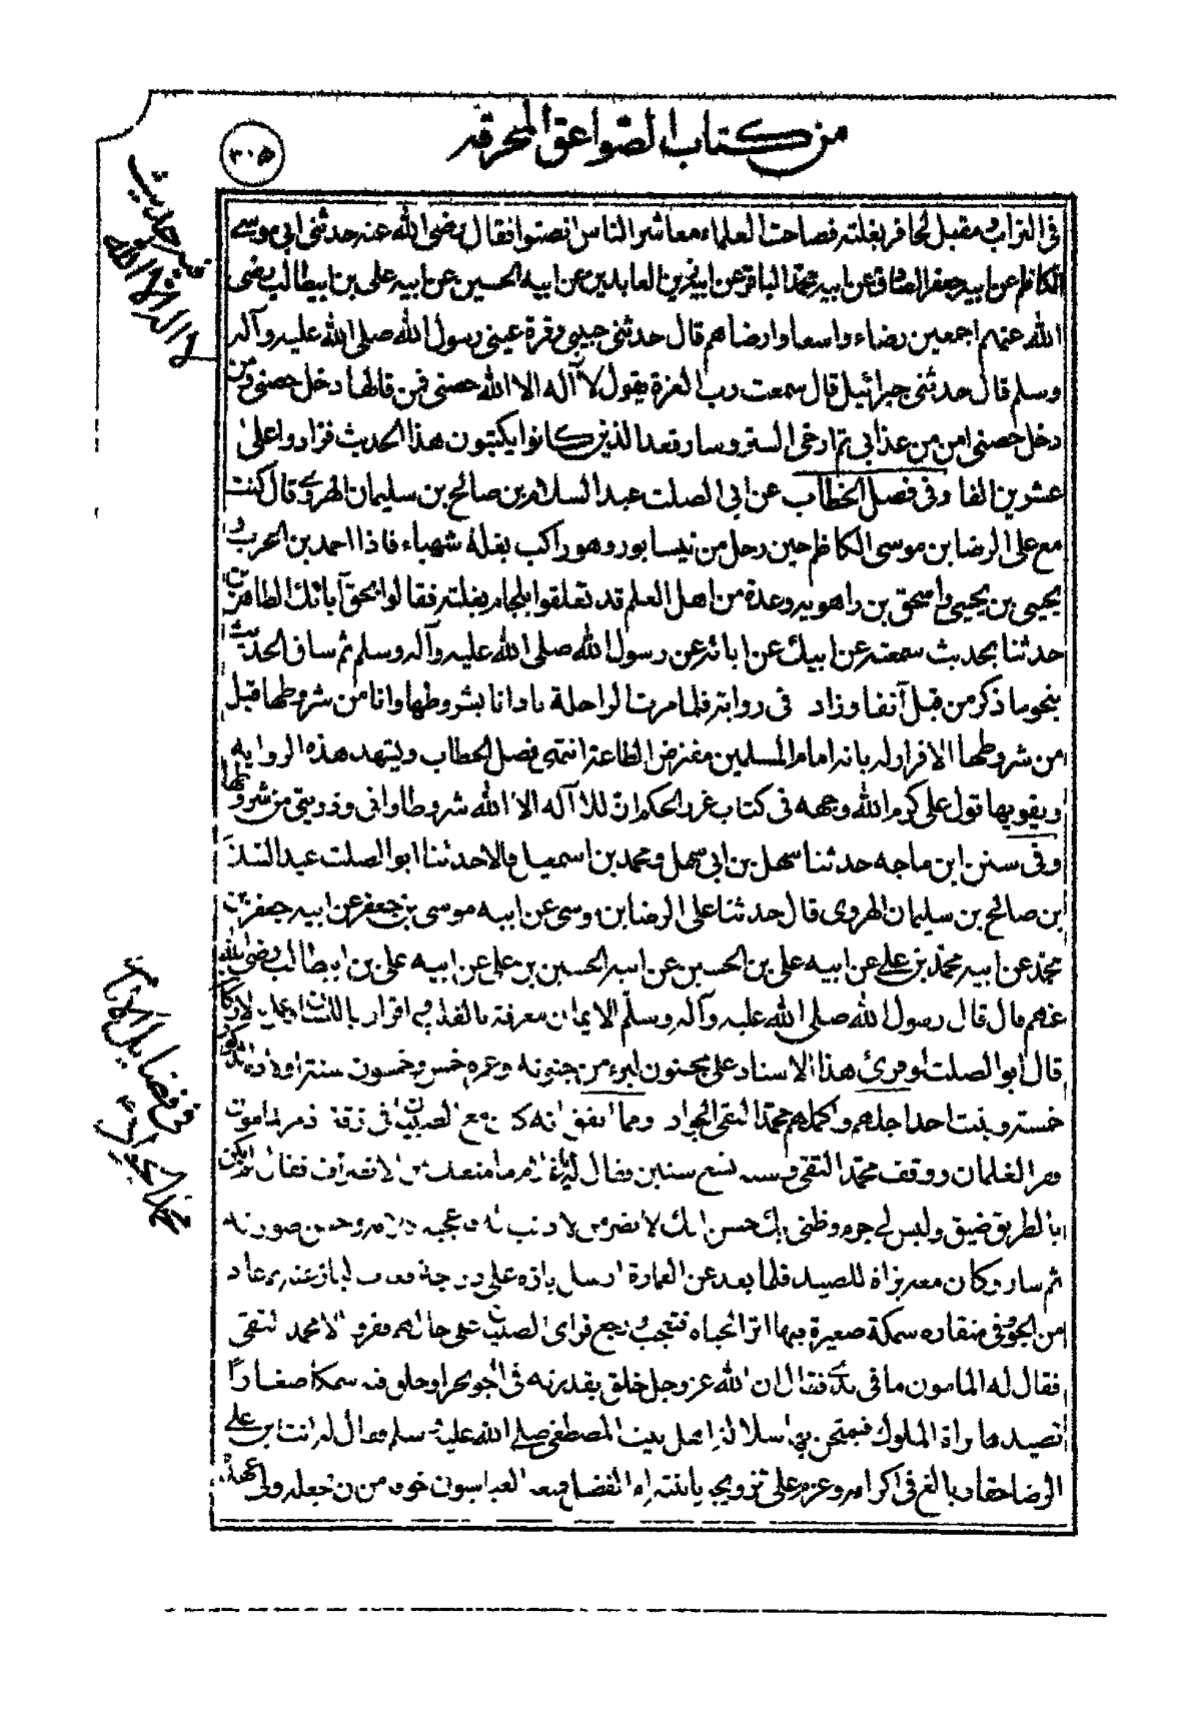 من كتاب الصواعق المحرقة
٣٠٥
فى التراب ومقبل لحافر بغلته فصاحت العلماء معاشر الناس انصتوا فقال رضى الله عنه حدثنى ابى موسى
الكاظم عن ابيه جعفر الصادق عن ابيه محمد الباقر عن ابيه زين العابدين عن ابيه الحسين عن ابيه على بن ابيطالب رضى
الله عنهم اجمعين رضاء واسعا وارضاهم قال حدثنى حبيبى وقرة عينى رسول الله صلى الله عليه وآله
وسلم قال حدثنى جبرائيل قال سمعت رب العزة يقول لا آله الا الله حصنى فمن قالها دخل حصنى ومن
دخل حصنى امن من عذابى ثم ارخى الستر وسار فعد الذين كانوا يكتبون هذا الحديث فزادوا على
عشرين الفا وفى فصل الخطاب عن ابى الصلت عبد السلام بن صالح بن سليمان الهروى قال كنت
مع على الرضا بن موسى الكاظم حين رحل من نيسابور وهو راكب بغلة شهباء فاذا احمد بن الحرب و
يحيى بن يحيى واسحق بن راهويه وعدة من اهل العلم قد تعلقوا بلجام بغلته فقالوا بحق آبائك الطاهرين
حدثنا بحديث سمعته عن ابيك عن ابائه عن رسول الله صلى الله عليه وآله وسلم ثم ساق الحديث
بنحو ما ذكر من قبل آنفا وزاد فى روايته فلما مرت الراحلة نادانا بشروطها وانا من شروطها قيل
من شروطها الاقرار له بانه امام المسلمين مفترض الطاعة انتهى فصل الخطاب ويشهد هذه الرواية
ويقويها قول على كرم الله وجهه فى كتاب غرر الحكم ان للا آله الا الله شروطا وانى وذريتى من شروطها
وفى سنن ابن ماجه حدثنا سهل بن ابى سهل ومحمد بن اسمعيل قالا حدثنا ابو الصلت عبد السلام
بن صالح بن سليمان الهروى قال حدثنا على الرضا بن موسى عن ابيه موسى بن جعفر عن ابيه جعفر بن
محمد عن ابيه محمد بن على عن ابيه على بن الحسين عن ابيه الحسين بن على عن ابيه على بن ابيطالب رضى الله
عنهم قال قال رسول الله صلى الله عليه وآله وسلم الايمان معرفة بالقلب واقرار باللسان وعمل بالاركان
قال ابو الصلت لو قرئ هذا الاسناد على مجنون لبرء من جنونه وعمره خمس وخمسون سنة واولاده الذكور
خمسة وبنت احد اجلهم واكملهم محمد التقى الجواد ومما اتفق انه كان مع الصبيان فى زقة ذمر المامون
ففر الغلمان ووقف محمد التقى وسنه تسع سنين فقال له يا غلام ما منعك من الانصراف فقال لم يكن
بالطريق ضيق وليس لى جرم وظنى بك حسن انك لا تضر من لا ذنب له فاعجبه كلامه وحسن صورته
ثم سار وكان معه بزاة للصيد فلما بعد عن العمارة ارسل بازه على دراجة فغاب الباز عنه ثم عاد
من الجو فى منقاره سمكة صغيرة فيها اثر الحياة فتعجب ورجع فراى الصبيان على حالهم ففروا الا محمد التقى
فقال له المامون ما فى يدى فقال ان الله عز وجل خلق بقدرته فى الجو بحرا وخلق فيه سمكا صغارا
تصيدها بزاة الملوك فيمتحن بها سلالة اهل بيت المصطفى صلى الله عليه وسلم فقال له انت بن على
الرضا حقا وبالغ فى اكرامه وعزم على تزويجه بابنته ام الفضل فمنعه العباسيون خوفا من ان يجعله ولى عهده
حديث
لا اله الا الله
فى فضايل الامام
محمد الجواد